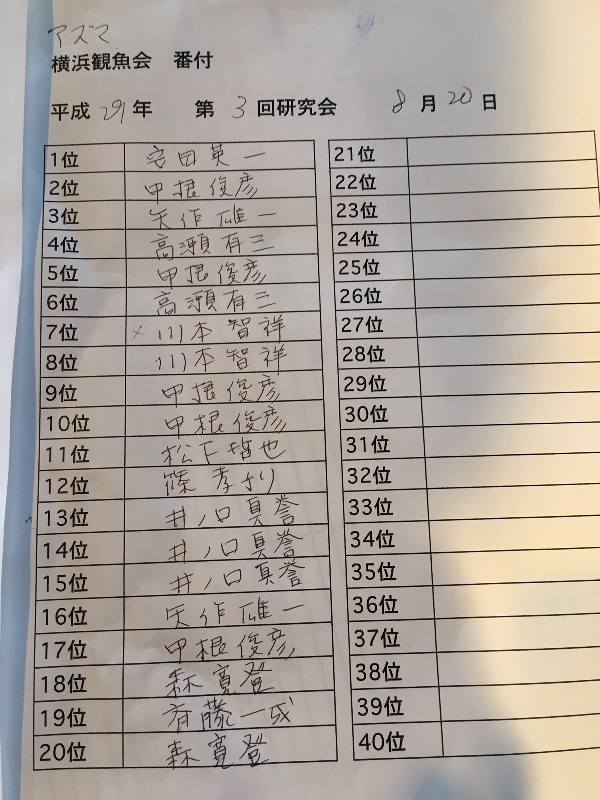 アズマ
横浜観魚会 番付
平成 29 年 第 3 回研究会 8 月 20 日
1位 安田英一
2位 甲根俊彦
3位 矢作雄一
4位 高瀬有三
5位 甲根俊彦
6位 高瀬有三
7位 × 川本智祥
8位 川本智祥
9位 甲根俊彦
10位 甲根俊彦
11位 松下哲也
12位 篠孝
13位 井ノ口真誉
14位 井ノ口真誉
15位 井ノ口真誉
16位 矢作雄一
17位 甲根俊彦
18位 森寛登
19位 斉藤一成
20位 森寛登
21位
22位
23位
24位
25位
26位
27位
28位
29位
30位
31位
32位
33位
34位
35位
36位
37位
38位
39位
40位